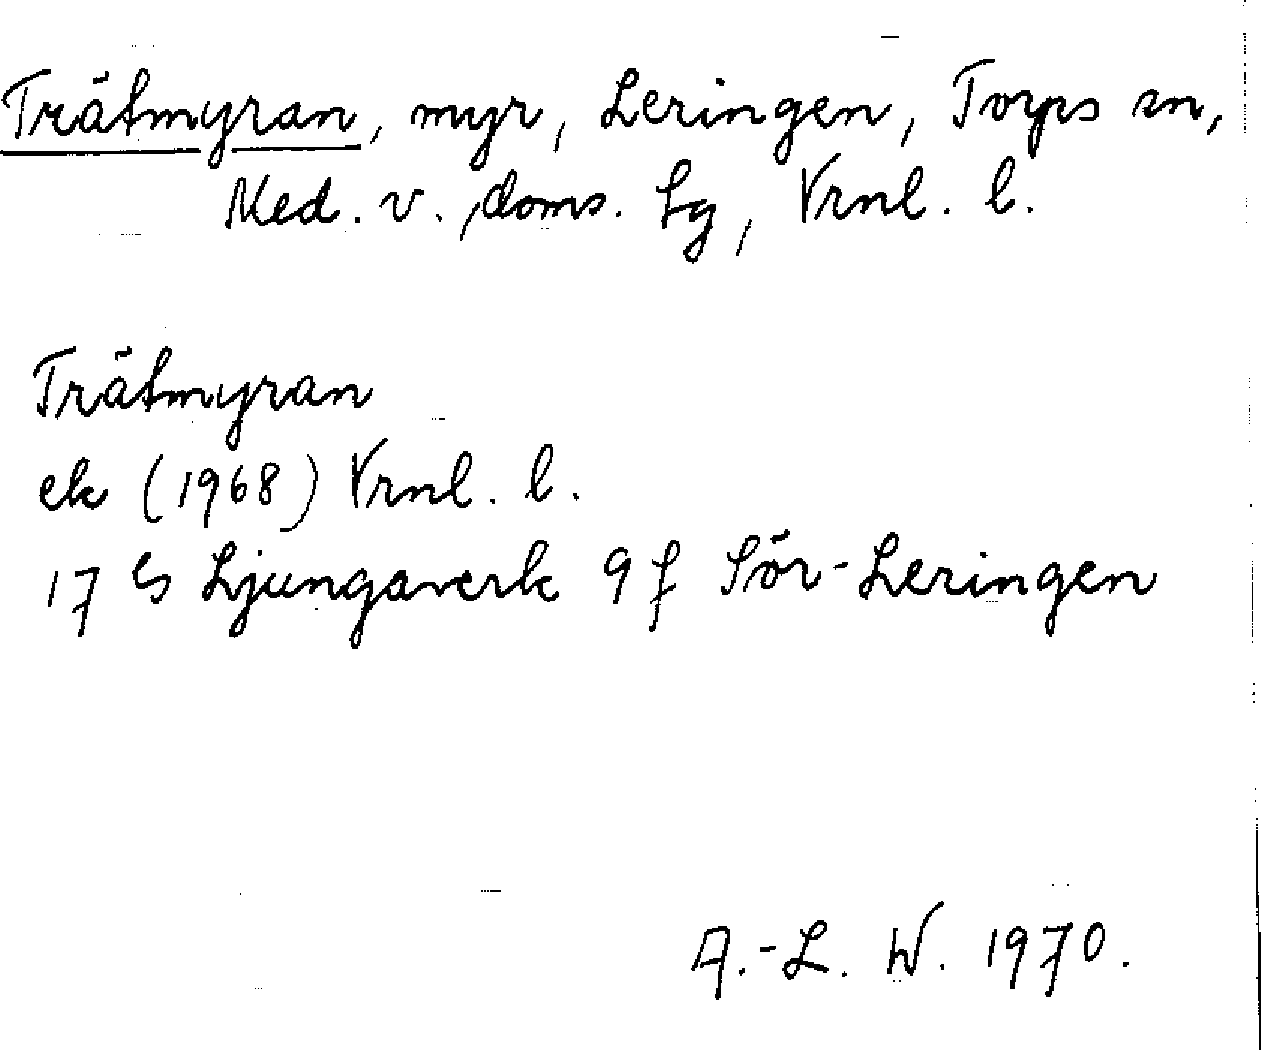 Trätmyran, myr, Leringen, Torps sn,
Med. v. doms. lg, Vrnl. l.
Trätmyran
ek (1968) Vrnl. l.
17 G Ljungaverk 9 f Sör-Leringen
A.-L. W. 1970.